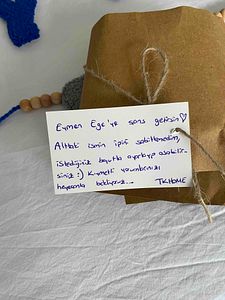 Eymen Ege'ye şans getirsin♡
Alttaki ismin ipini sabitlemedim,
istediğiniz boyutta ayarlayıp asabilir-
siniz :) Kıymetli yorumlarınızı
heyecanla bekliyoruz...
TKHOME